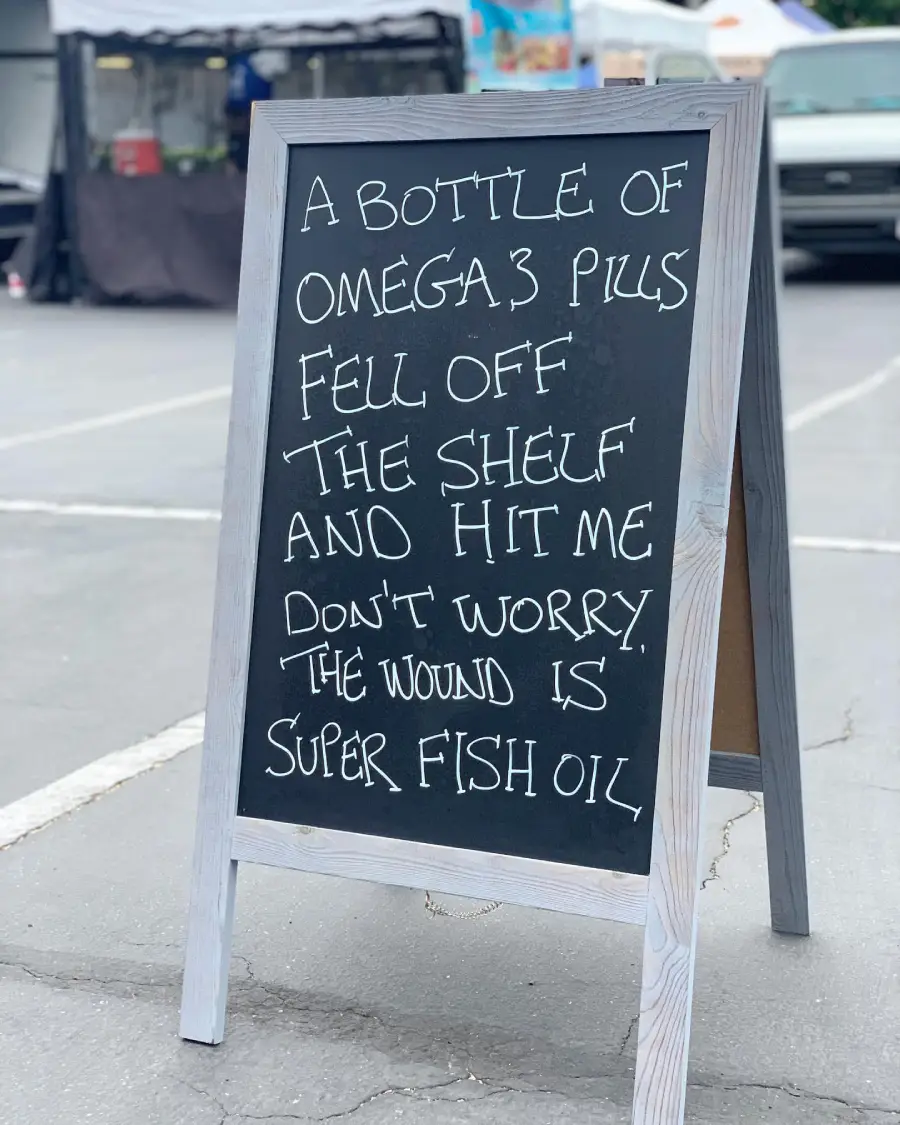 A BOTTLE OF
OMEGA 3 PILLS
FELL OFF
THE SHELF
AND HIT ME
DON'T WORRY,
THE WOUND IS
SUPER FISH OIL